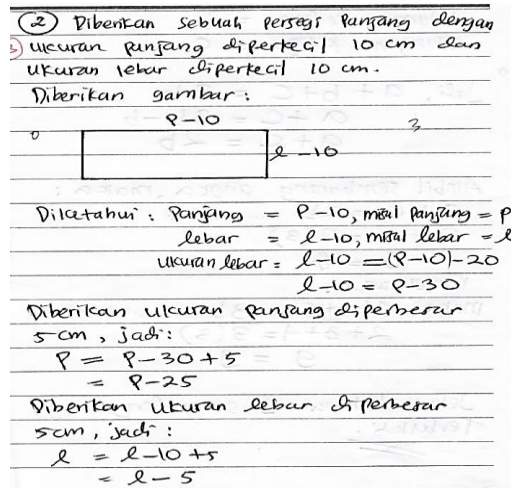 ② Diberikan sebuah persegi panjang dengan
ukuran panjang diperkecil 10 cm dan
ukuran lebar diperkecil 10 cm.
Diberikan gambar :
P-10
3
l-10
Diketahui : Panjang = P-10, misal panjang = P
lebar = l-10, misal lebar = l
ukuran lebar = l-10 = (P-10)-20
l-10 = P-30
Diberikan ukuran panjang diperbesar
5 cm, jadi :
P = P-30+5
= P-25
Diberikan ukuran lebar diperbesar
5 cm, jadi :
l = l-10+5
= l-5